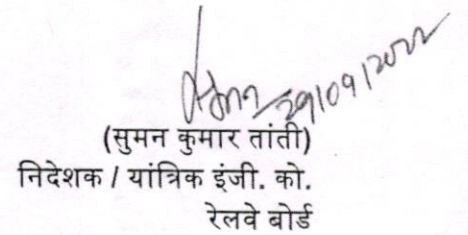 29/09/2022
(सुमन कुमार तांती)
निदेशक / यांत्रिक इंजी. को.
रेलवे बोर्ड